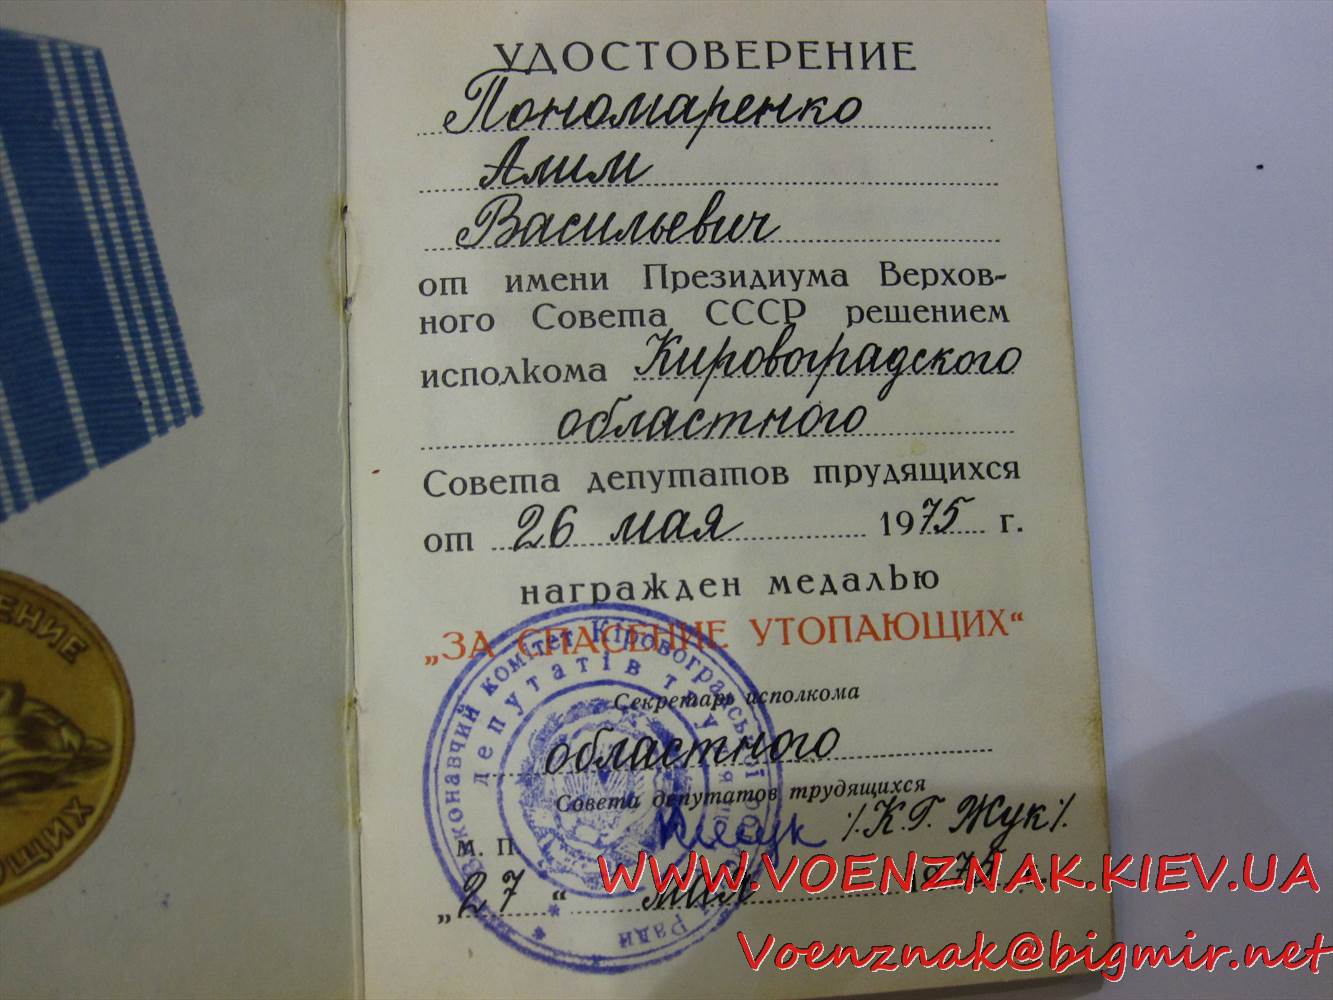 УДОСТОВЕРЕНИЕ
Пономаренко
Алим
Васильевич
от имени Президиума Верхов-
ного Совета СССР решением
исполкома Кировоградского
областного
Совета депутатов трудящихся
от 26 мая 1975 г.
награжден медалью
„ЗА СПАСЕНИЕ УТОПАЮЩИХ“
Секретарь исполкома
областного
Совета депутатов трудящихся
/К.Г. Жук/
М. П.
„27“ мая 1975
конавчий комітет Кіровоградської
депутатів
Ради
ЕНИЕ
WWW.VOENZNAK.KIEV.UA
Voenznak@bigmir.net